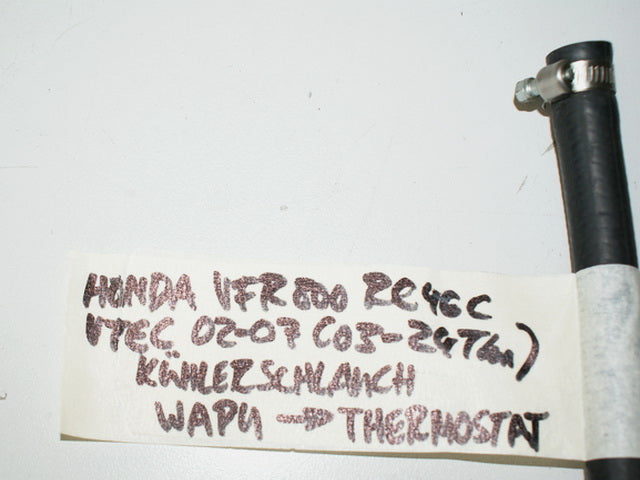 HONDA VFR 800 RC46C
VTEC 02-07 (03-24Tkm)
KÜHLERSCHLAUCH
WAPU → THERMOSTAT